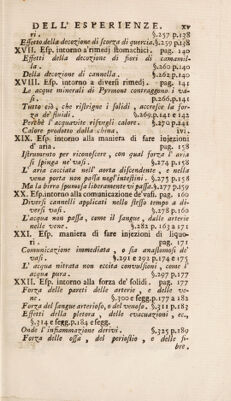 DELL' ESPERIENZE. xv
ri. §.257 p.138
Effetto della decozione di scorza di quercia. §.259 p.138
XVII. Esp. intorno a'rimedj stomachici. pag. 140
Effetti della decozione di fiori di camamil-
la. §.260 p.140
Della decozione di cannella. §.262 p.140
XVIII. Esp. intorno a diversi rimedj. pag. 141
Le acque minerali di Pyrmont contraggono i va-
si. §.265 p.141
Tutto ciò, che ristrigne i solidi, accresce la for-
za de' fluidi. §.269 p.141
Perchè l'acquavite risvegli calore. §.270 p.141
Calore prodotto dalla china. ivi.
XIX. Esp. intorno alla maniera di fare injezioni
d'aria. pag. 158
Istrumento per riconoscere, con qual forza l'aria
si spinga ne' vasi. §.274 p.158
L' aria cacciata nell' aorta discendente, e nella
vena porta non passa negl'intestini. §.275 p.158
Ma la birra spumosa liberamente vi passa. §.277 p.159
XX. Esp. intorno alla comunicazione de' vasi. pag. 160
Diversi cannelli applicati nello stesso tempo a di-
versi vasi. §.278 p.160
L'acqua non passa, come il sangue, dalle arterie
nelle vene. §.282 p.163 a 171
XXI. Esp. maniera di fare injezioni di liquo-
ri. pag. 171
Comunicazione immediata, o sia anastomosi de'
vasi. §.291 e 292 p.174 e 175
L' acqua nitrata non eccita convulsioni, come l'
acqua pura. §.297 p.177
XXII. Esp. intorno alla forza de' solidi. pag. 177
Forza delle pareti delle arterie, e delle ve-
ne. §.300 e segg. p.177 a 182
Forza del sangue arterioso, e del venoso. §.311 p.183
Effetti della pletora, delle evacuazioni, ec.,
§.314 e segg. p.184 e segg.
Onde l'infiammazione derivi. §.325 p.189
Forza delle ossa, del periostio, e delle fi-
bre,